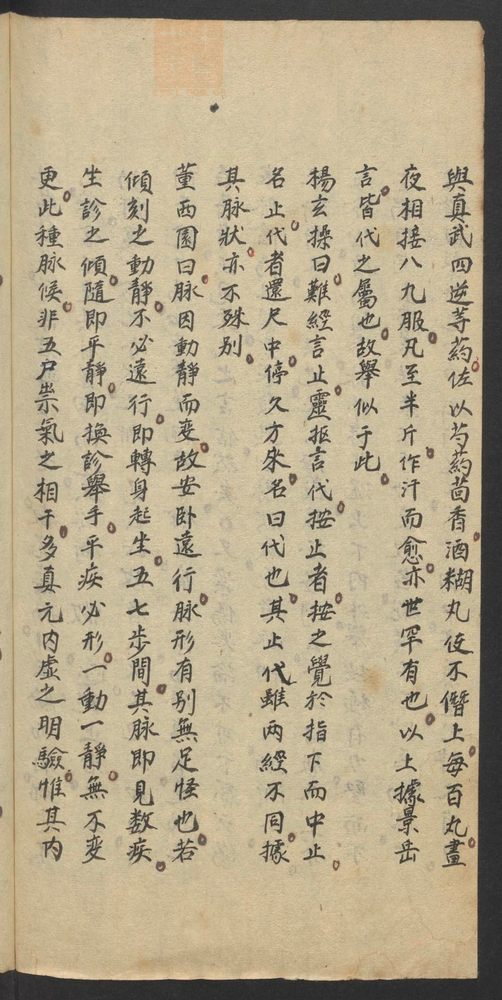 與真武四逆等药佐以芍药茴香酒糊丸使不僭上每百丸晝
夜相接八九服凡至半斤作汗而愈亦世罕有也以上據景岳
言皆代之屬也故舉似于此
楊玄操曰難經言止靈抠言代按止者按之覺於指下而中止
名止代者還尺中停久方來名曰代也其止代雖两經不同據
其脉狀亦不殊别
董西園曰脉因動靜而变故安卧遠行脉形有别無足怪也若
傾刻之動靜不必遠行即轉身起坐五七步間其脉即見数疾
坐診之傾隨即平靜即換診舉手平疾必形一動一靜無不变
更此種脉候非五尸祟氣之相干多真元内虚之明驗惟其内